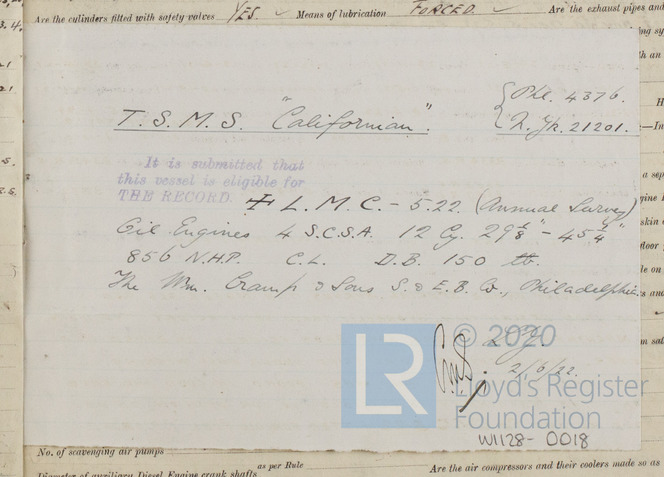 Are the cylinders fitted with safety valves YES. ✓ Means of lubrication FORCED. ✓ Are the exhaust pipes and
Phl. 4376.
T. S. M. S. "Californian". N. Yk. 21201.
It is submitted that
this vessel is eligible for
THE RECORD. ✠ L. M. C. - 5.22 (Annual Survey)
Oil Engines 4 S.C.S.A. 12 Cy. 29 1/8 - 45 1/4"
856 N.H.P. C.L. D.B. 150 lb.
The Wm. Cramp & Sons S. & E. B. Co., Philadelphia
© 2020
2/6/22.
LR
Lloyd's Register
Foundation
W1128-0018
No. of scavenging air pumps
as per Rule
Diameter of auxiliary Diesel Engine crank shafts Are the air compressors and their coolers made so as